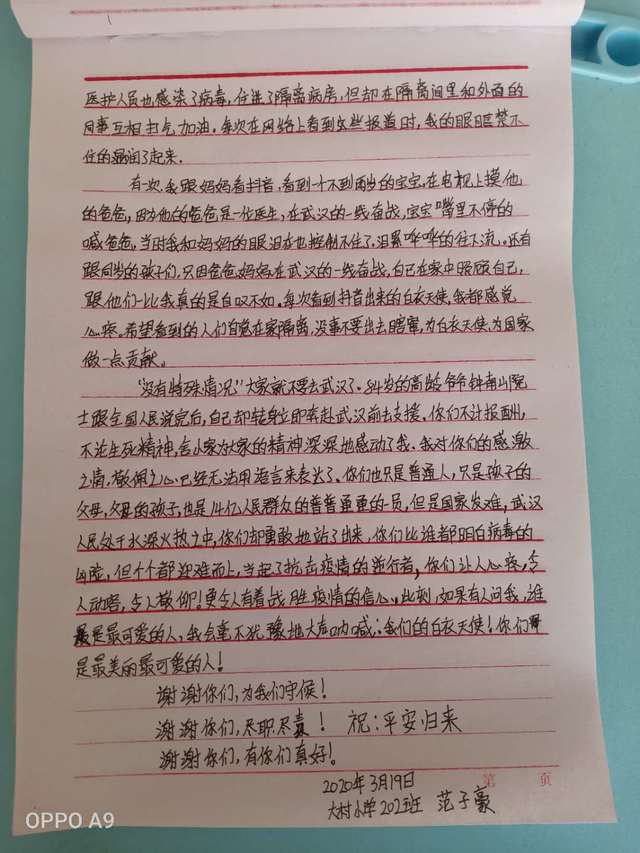 医护人员也感染了病毒,住进了隔离病房,但却在隔离间里和外面的
同事互相打气加油。每次在网络上看到这些报道时,我的眼眶禁不
住的湿润了起来。
有一次,我跟妈妈看抖音,看到一个不到两岁的宝宝,在电视上摸他
的爸爸,因为他的爸爸是一位医生,在武汉的一线奋战,宝宝嘴里不停的
喊爸爸,当时我和妈妈的眼泪在也控制不住了,泪累哗哗的往下流。还有
跟同岁的孩子们,只因爸爸、妈妈在武汉的一线奋战,自己在家中照顾自己,
跟他们一比我真的是自叹不如。每次看到抖音出来的白衣天使,我都感觉
心疼。希望看到的人们自觉在家隔离,没事不要出去瞎窜,为白衣天使、为国家
做一点贡献。
“没有特殊情况”大家就不要去武汉了。84岁的高龄爷爷钟南山院
士跟全国人民说完后,自己却转身立即奔赴武汉前去支援。你们不计报酬,
不论生死精神,舍小家为大家的精神深深地感动了我。我对你们的感激
之情、敬佩之心已经无法用语言来表达了、你们也只是普通人,只是孩子的
父母,父母的孩子,也是14亿人民群众的普普通通的一员,但是国家发难,武汉
人民处于水深火热之中,你们却勇敢地站了出来,你们比谁都明白病毒的
凶险,但个个都迎难而上,当起了抗击疫情的逆行者,你们让人心疼,令
人动容,令人敬仰!更令人有着战胜疫情的信心。此刻,如果有人问我,谁
是最可爱的人,我会毫不犹豫地大声呐喊:我们的白衣天使!你们
是最美丽最可爱的人!
谢谢你们,为我们守候!
谢谢你们,尽职尽责! 祝:平安归来
谢谢你们,有你们真好!
2020年3月19日
大村小学202班 范子豪
第 页
OPPO A9